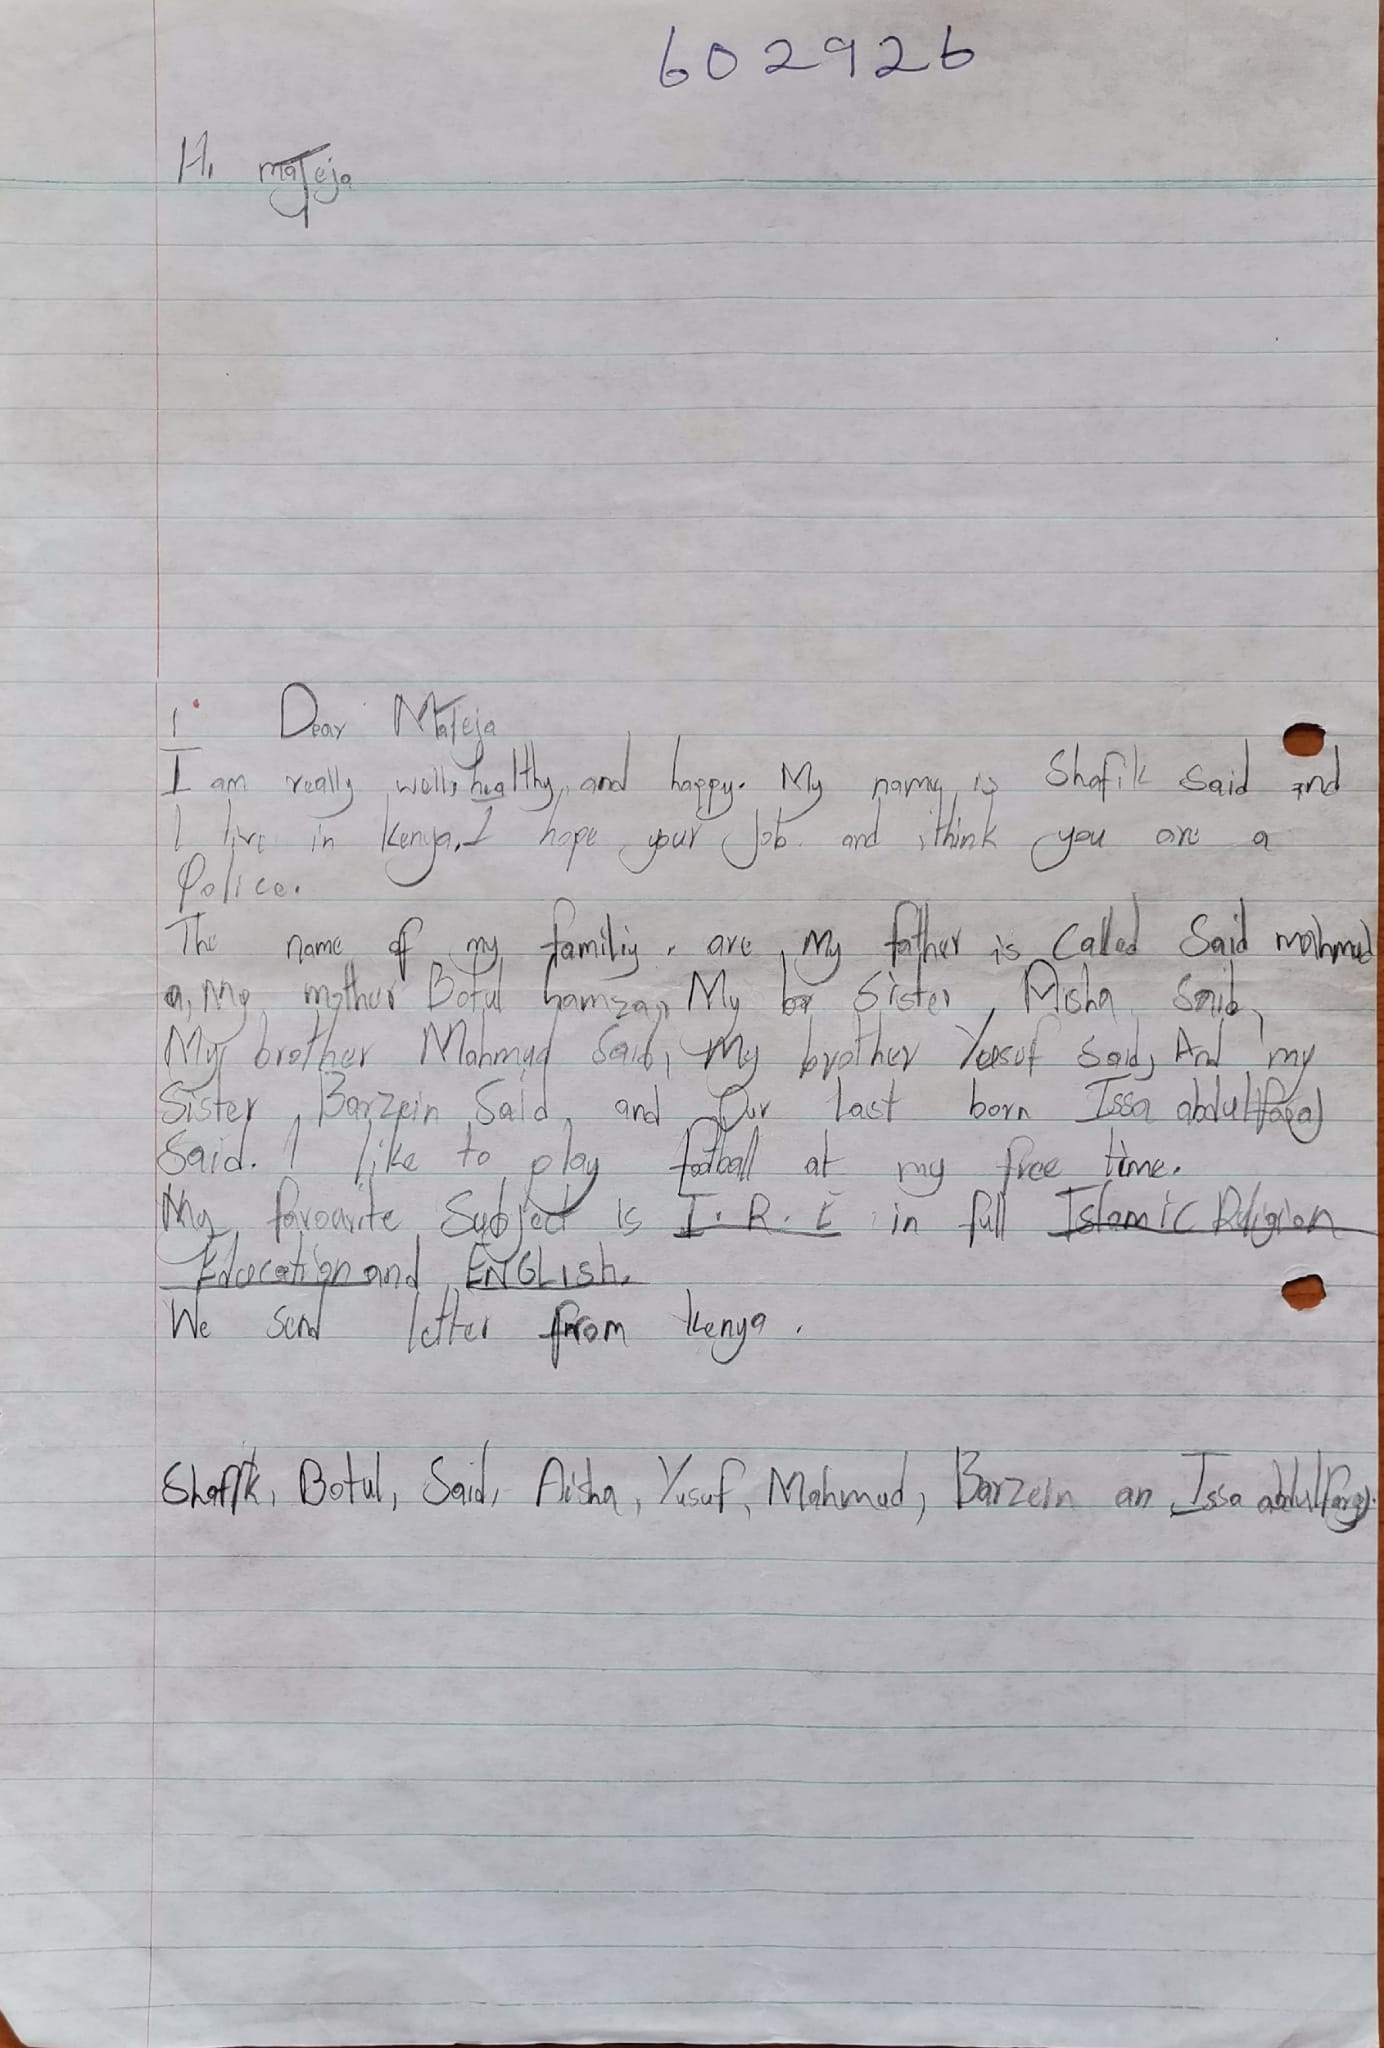 602926
Hi mateja
1 Dear Mateja
I am really well, healthy, and happy. My name is Shafik Said and
I live in Kenya, I hope your Job and ithink you are a
Police.
The name of my familiy, are my father is Called Said mahmud
a, my mother Botul hamza, My br Sister, Aisha Said,
My brother Mahmud Said, My brother Yusuf Said, And my
Sister, Barzein Said, and Our last born Issa abdulfaraj
Said. I like to play football at my free time.
My favourite Subject is I.R.E in full Islamic Religion
Education and ENGLISh.
We send letter from Kenya.
Shafik, Botul, Said, Aisha, Yusuf, Mahmud, Barzein an Issa abdulfaraj.